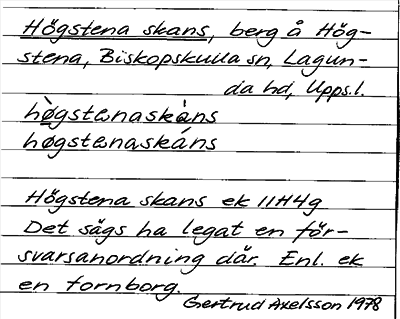 Högstena skans, berg å Hög-
stena, Biskopskulla sn, Lagun-
da hd, Upps.l.
hø̀gstɷnaskàns
høgstɷnaskáns
Högstena skans ek 11H4g
Det sägs ha legat en för-
svarsanordning där. Enl. ek
en fornborg.
Gertrud Axelsson 1978